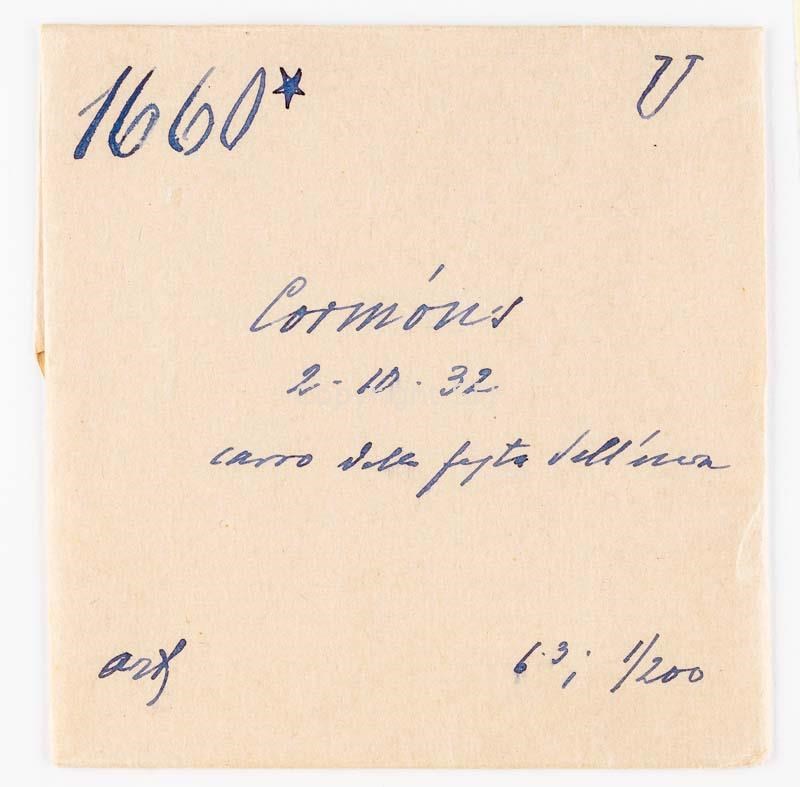 1660* U
Cormóns
2-10-32
carro della festa dell'uva
6.3; 1/200